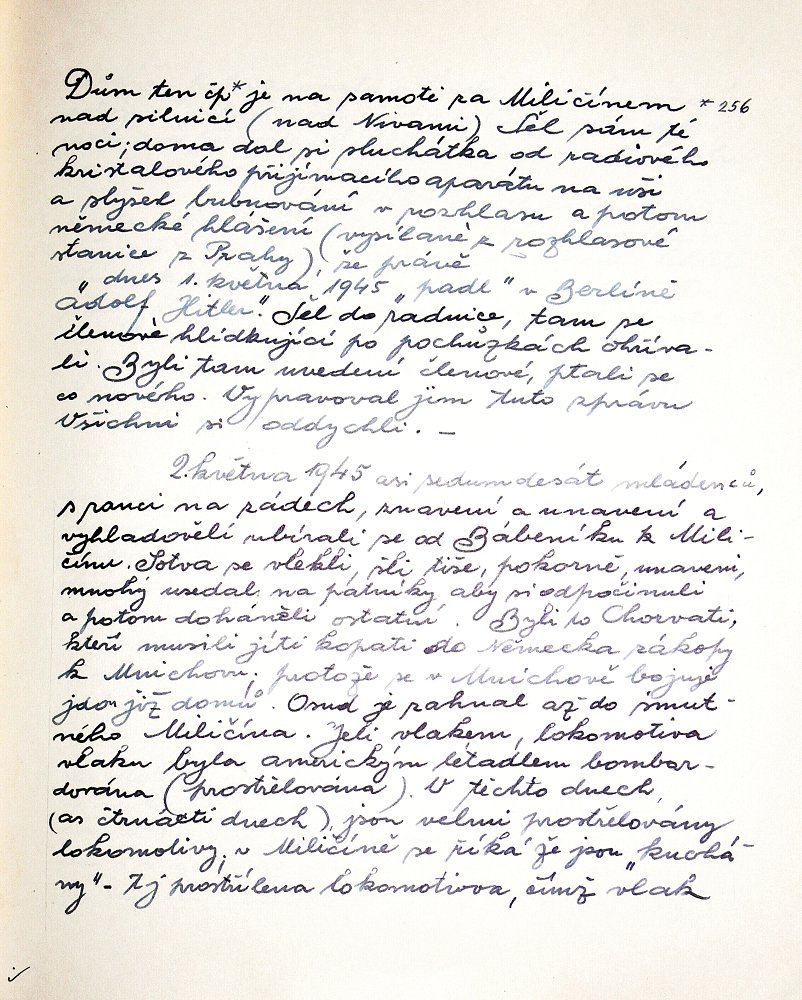 Dům ten čp* je na samotě za Miličínem * 256
nad silnicí (nad Nivami) Šel sám té
noci; doma dal si sluchátka od radiového
kristalového přijímacího aparátu na uši
a slyšel bubnování v rozhlasu a potom
německé hlášení (vysílané z rozhlasové
stanice z Prahy), že právě
„dnes 1. května 1945 „padl" v Berlíně
Adolf Hitler". Šel do radnice, tam se
členové hlídkující po pochůzkách ohříva-
li. Byli tam uvedení členové, ptali se
co nového. Vypravoval jim tuto zprávu
Všichni si oddychli. —
2. května 1945 asi sedumdesát mládenců,
s ranci na zádech, znavení a unavení a
vyhladovělí ubírali se od Bábeníku k Mili-
čínu. Sotva se vlekli, šli tiše, pokorně, unaveni,
mnohý usedal na patníky aby si odpočinuli
a potom doháněli ostatní. Byli to Chorvati,
kteří musili jíti kopati do Německa zákopy
k Mnichovu; protože se v Mnichově bojuje
jdou již domů. Osud je zahnal až do smut-
ného Miličína. Jeli vlakem, lokomotiva
vlaku byla americkým létadlem bombar-
dována (prostřelována). V těchto dnech
(as čtrnácti dnech), jsou velmi prostřelovány
lokomotivy; v Miličíně se říká že jsou „kuchá-
ny" - Tj prostřílena lokomotivva, čímž vlak